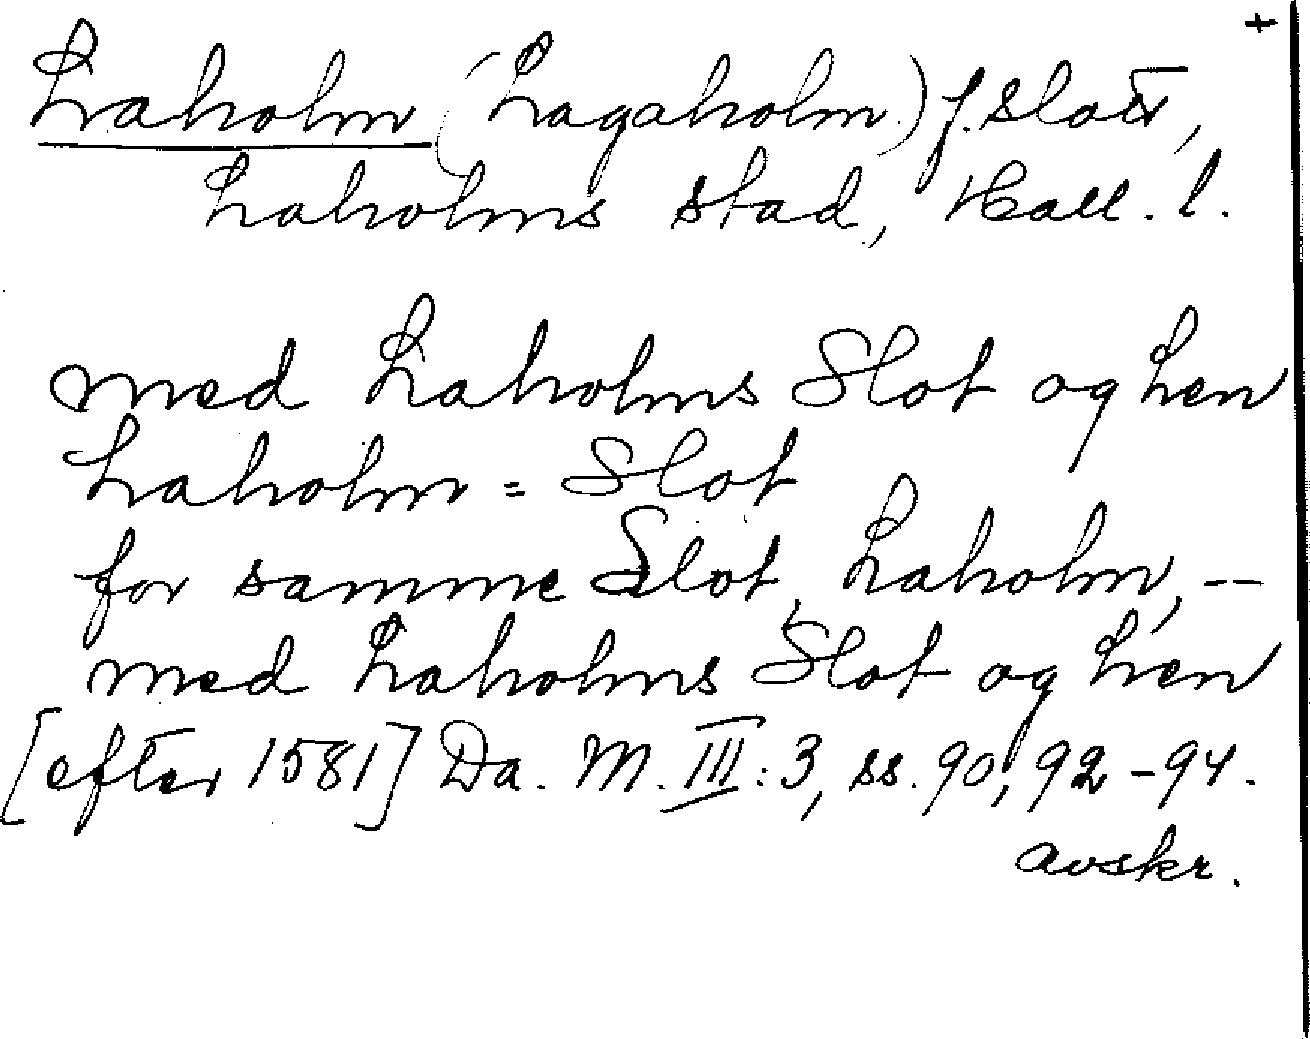 +
Laholm (Lagaholm) f. slott,
Laholms stad, Hall. l.
med Laholms Slot og Len
Laholm = Slot
for samme Slot, Laholm, --
med Laholms Slot og Len
[efter 1581] Da. M. III: 3, ss. 90, 92-94.
avskr.